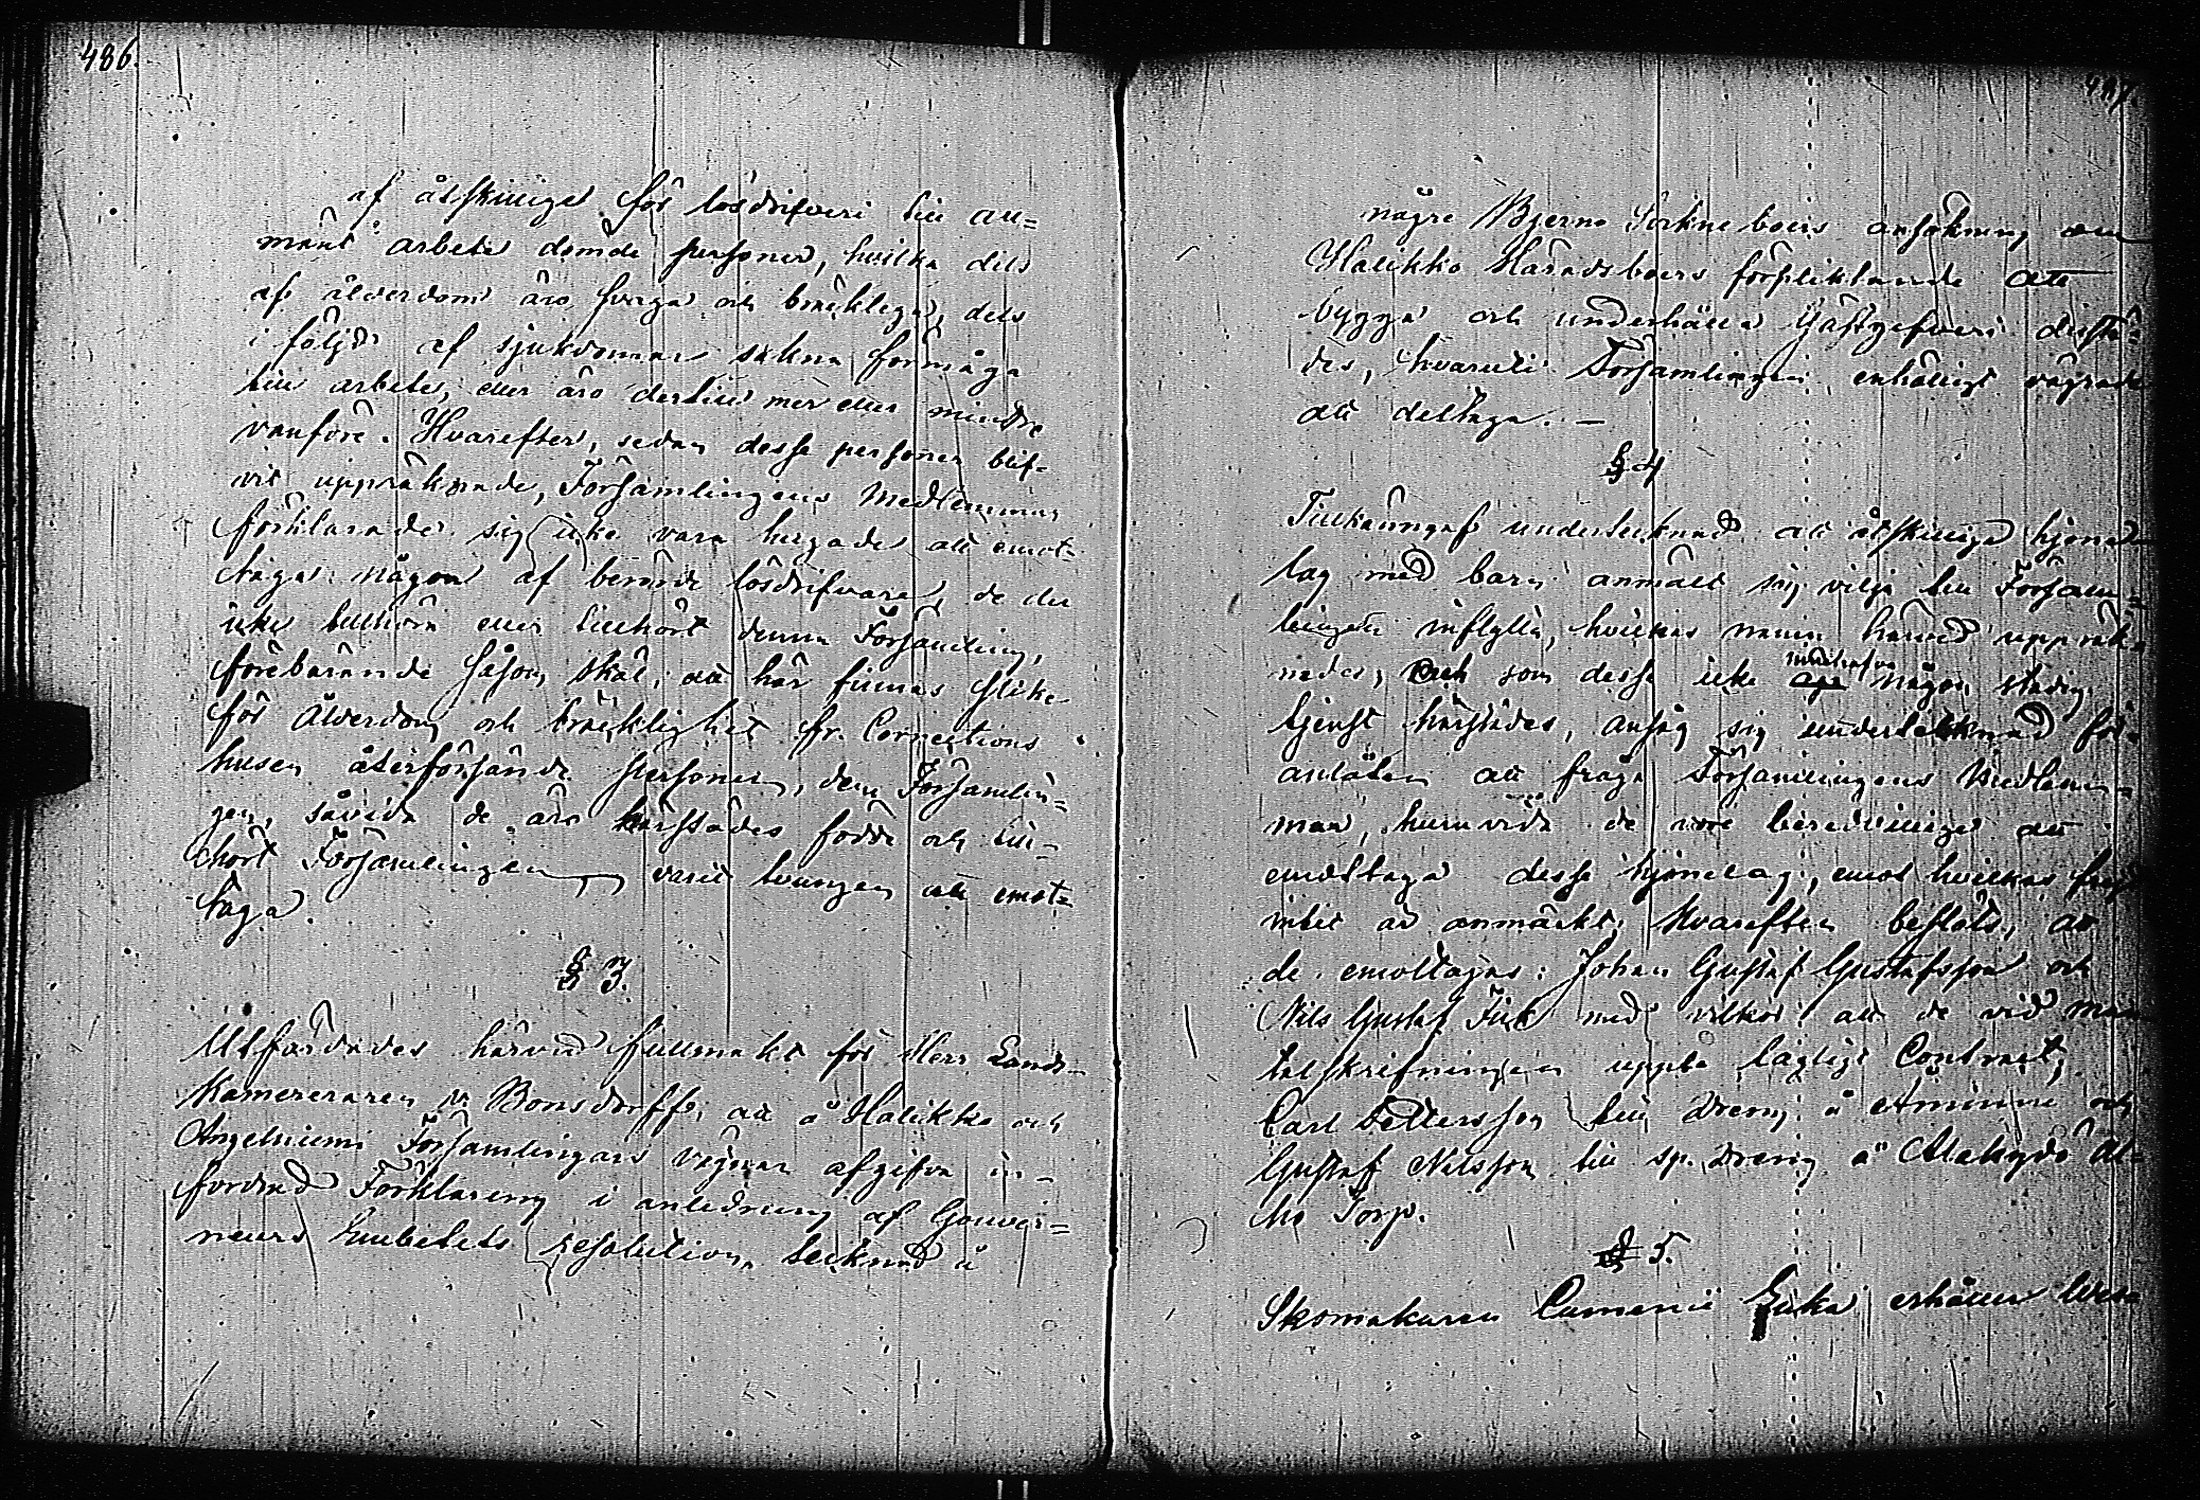 486.
af åtskillige för lösdrifveri till all=
mänt arbete dömde personer, hvilka dels
af ålderdom äro svaga och bräcklige, dels
i följd af sjukdomar sakna förmåga
till arbete, eller äro dertill mer eller mindre
vanföre. Hvarefter, sedan desse personer blif-
vit uppräknade, Församlingens Medlemmar
förklarade sig icke vara hugade att emot=
taga någon af berörde lösdrifvare, de der
icke tillhöra eller tillhört denna Församling,
förebärande såsom skäl, att här finnas slike
för ålderdom och bräcklighet fr. Corrections
husen återförsände personer, dem Församlin=
gen, såvida de äro härstädes födde och till-
hört Församlingen varit tvungen att emot=
taga.
§ 3.
Utfärdades härvid fullmakt för Herr Lands-
Kamereraren v. Bonsdorff, att å Halikko och
Angelniemi Församlingars vägnar afgifva in-
fordrad Förklaring i anledning af Gouver=
neurs Embetets resolution, tecknad å
487.
någre Bjerno Sockne boers ansökning om
Halikko Häradsboers förpliktande att
bygga och underhålla Gästgifveri derstä=
des, hvaruti Församlingen enhälligt vägrade
att deltaga. —
§ 4
Tillkännagaf undertecknad att åtskillige hjone
lag med barn anmält sig vilja till Försam=
lingen inflytta, hvilkas namn härvid uppräk-
nades, och som desse icke innehafva någon stadig
tjenst härstädes, ansåg sig undertecknad för-
anlåten att fråga Församlingens Medlem-
mar, huruvida de vore beredvillige att
emottaga desse hjonelag, emot hvilkas frejd
intet är anmärkt; Hvarefter beslöts, att
de emottagas: Johan Gustaf Gustafsson och
Nils Gustaf Fisk med vilkor: att de vid man
talskrifningen uppte lagligt Contract,
Carl Pettersson till dreng å Åminne och
Gustaf Nilsson till sp. dreng å Alakyrö Al-
ho Torp.
§ 5.
Skomakaren Eukai erhåller